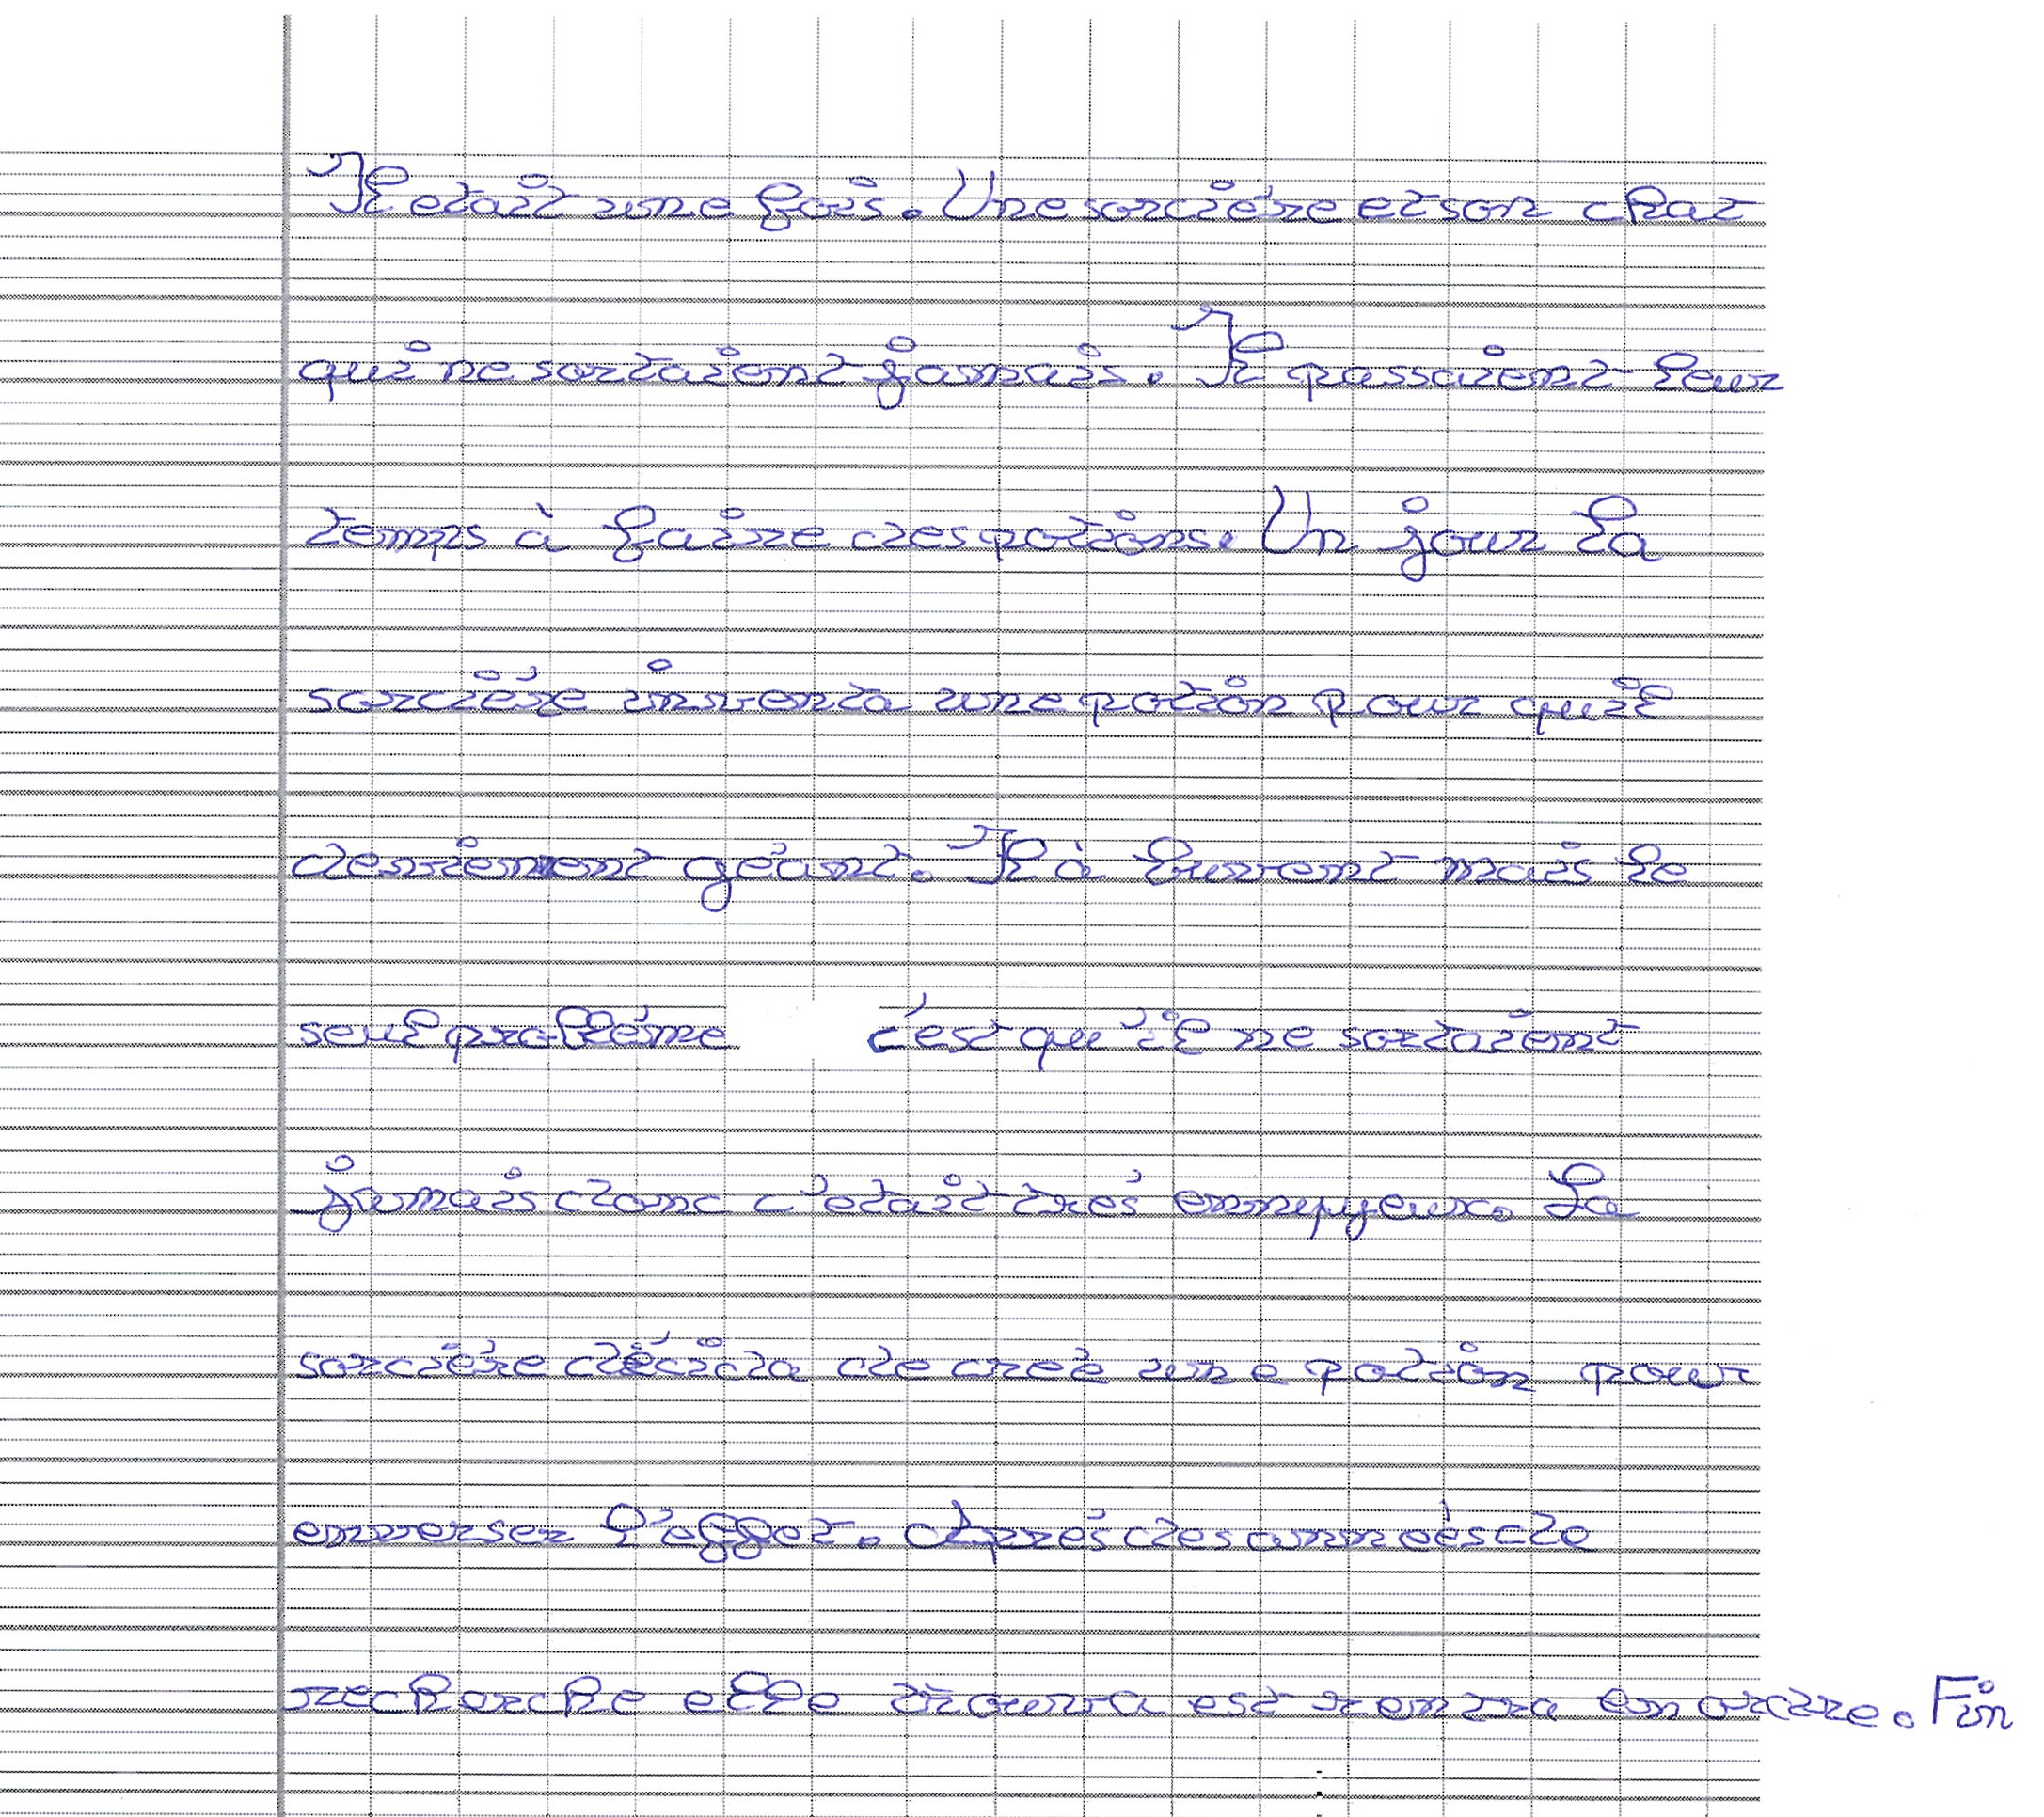 Il etait une fois. Une sorciére et son chat
qui ne sortaient jamais. Il passaient leur
temps à faire des potions. Un jour la
sorciére inventa une potion pour quil
deviennent géant. Il à buvent mais le
seul probléme c'est qu'il ne sortaient
jamais donc c'etait trés ennuyeux. La
sorciére décida de creé une potion pour
enverser l'effet. Aprés des anneés de
recherche elle trouva est rentra en ordre. Fin